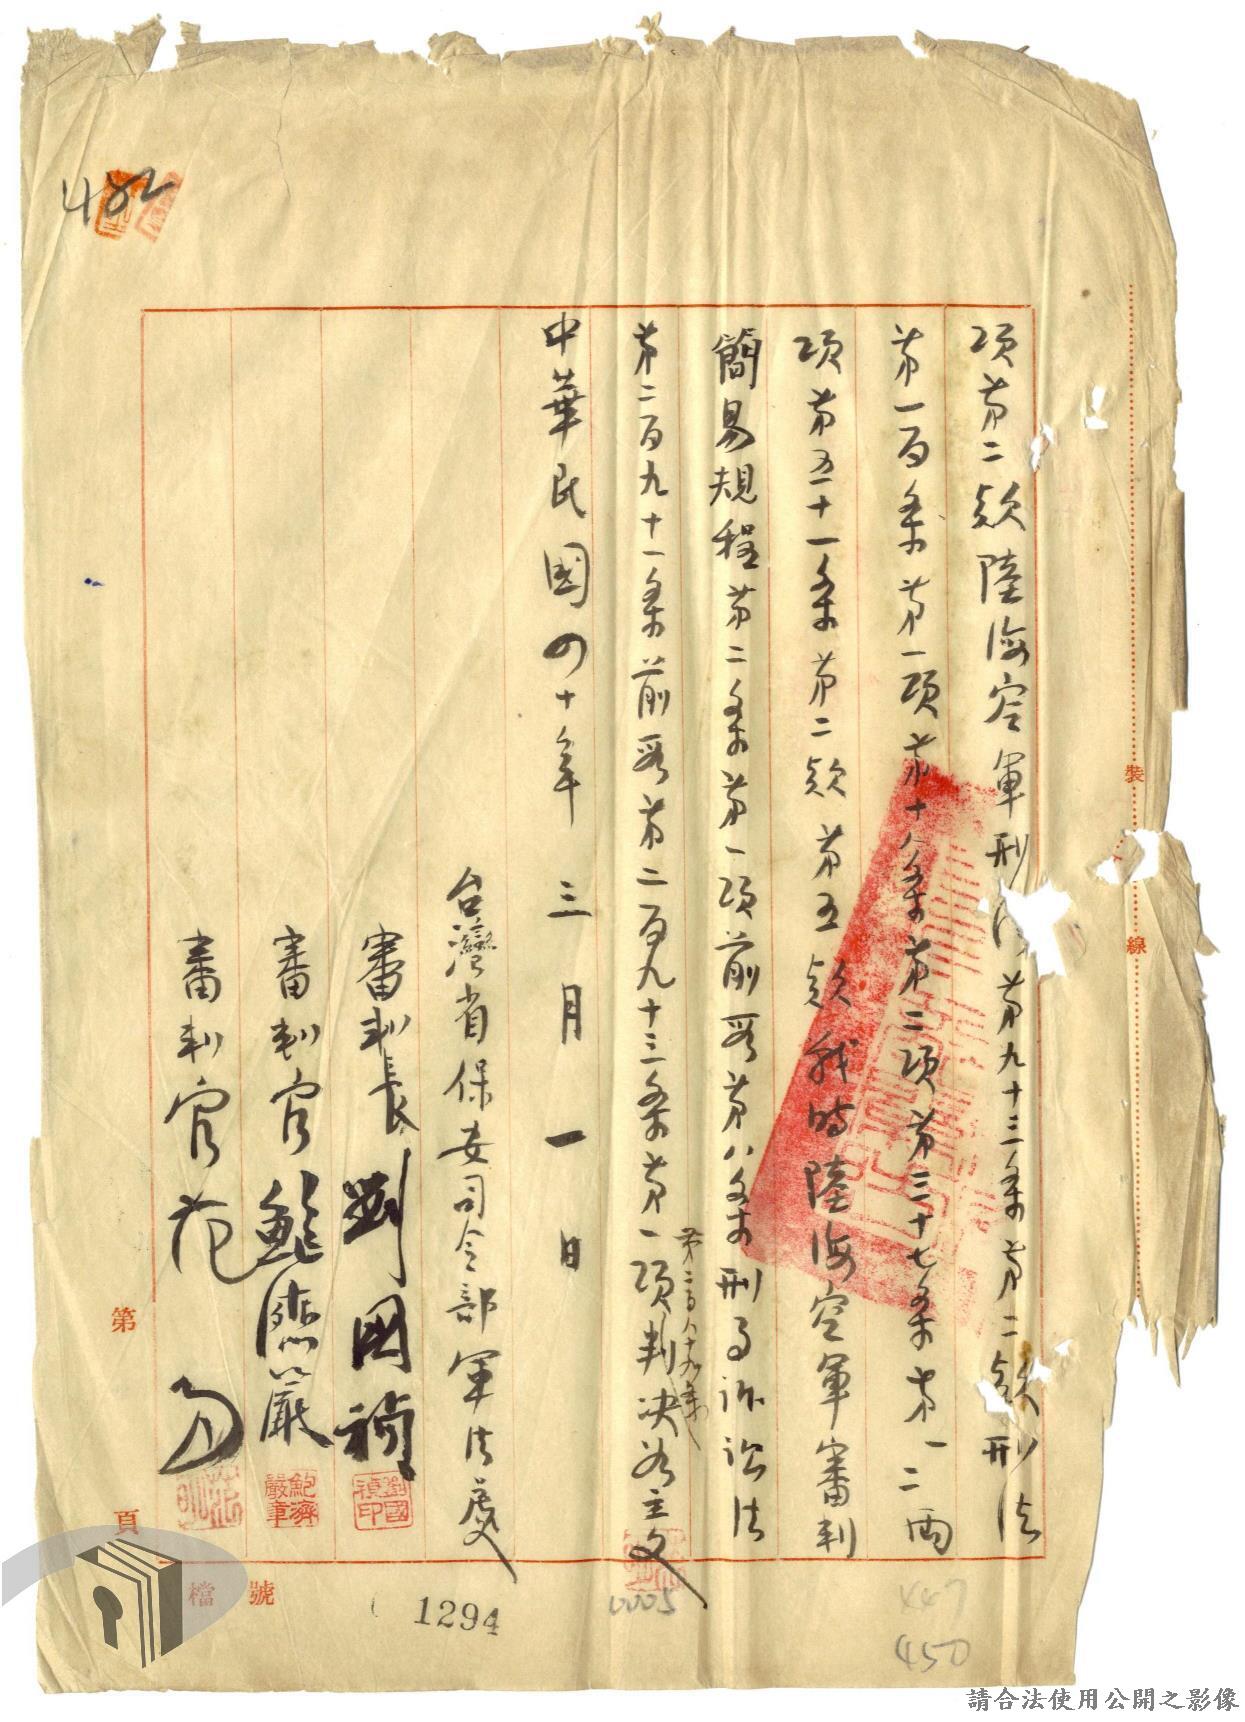 項第二款陸海空軍刑法第九十三条第二款刑法
第一百条第一項第十八条第二項第三十七条第一二両
項第五十一条第二款第五款戰時陸海空軍審判
簡易規程第二条第一項前段第八条刑事訴訟法
第二百八十四条
第二百九十一条前段第二百九十三条第一項判決如主文
中華民國四十年三月一日
台灣省保安司令部軍法處
審判長劉國禎
劉國禎印
審判官鮑濟嚴
鮑濟嚴章
審判官范明
482
裝
線
第
頁
檔號
1294
0005
447
450
請合法使用公開之影像